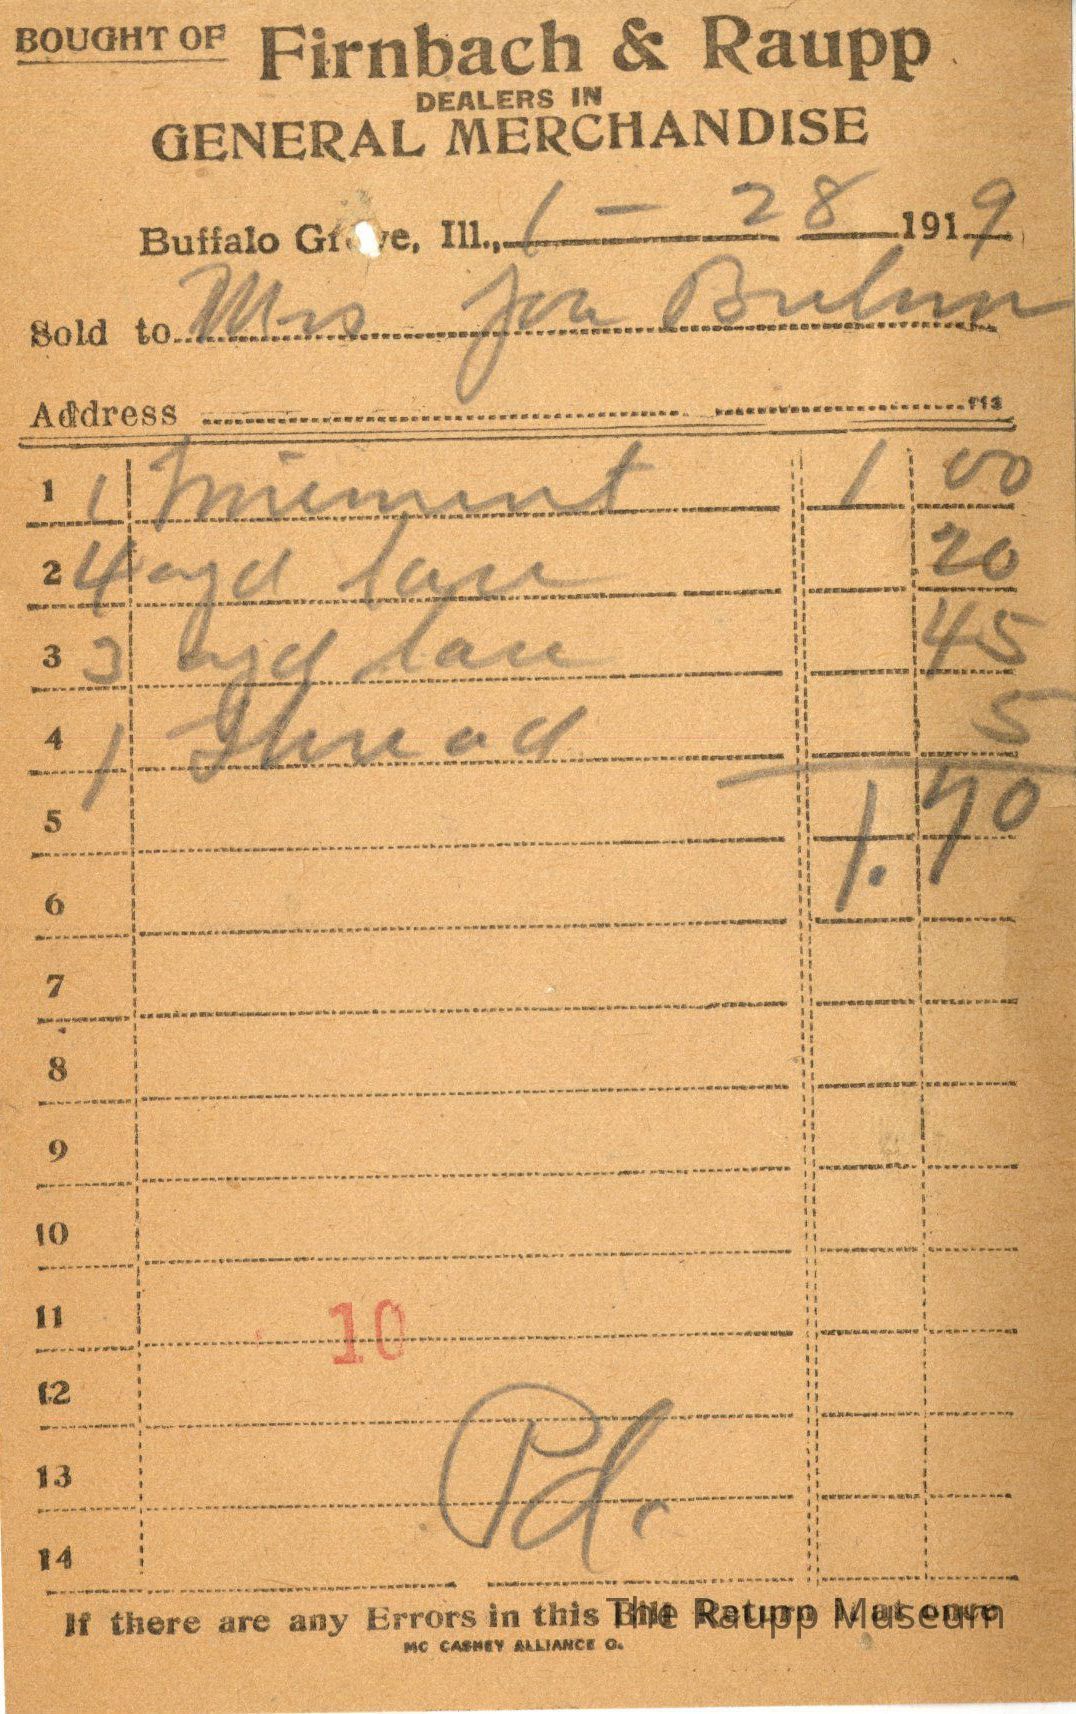 BOUGHT OF Firnbach & Raupp
DEALERS IN
GENERAL MERCHANDISE
Buffalo Grove, Ill., 1 - 28 1919
Sold to Mrs Joe
Address
1 1 1 00
2 4 yd lace 20
3 3 yd lace 45
4 1 Thread 5
5 1.70
6
7
8
9
10
11
10
12
13 Pd.
14
If there are any Errors in this Bill Return it at once
The Raupp Museum
MC CASKEY ALLIANCE O.